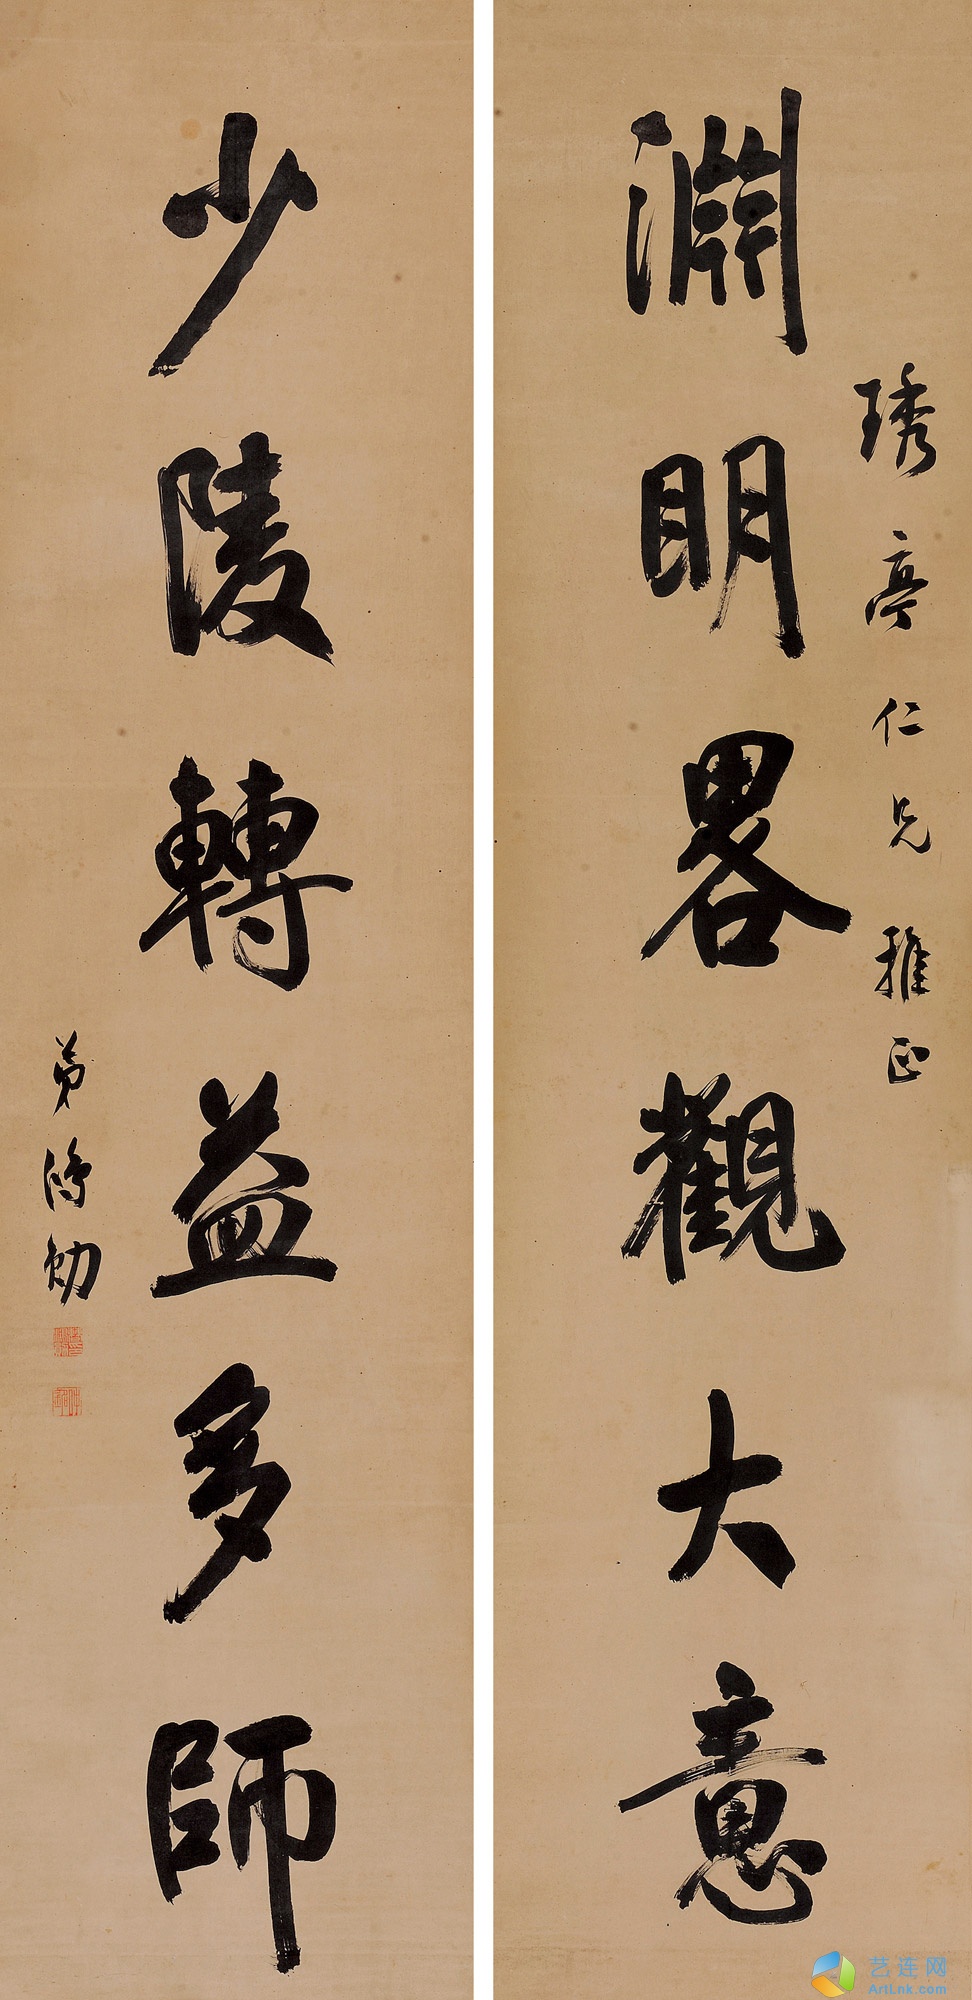 琇亭仁兄雅正
淵明畧觀大意
少陵轉益多師
弟鴻勛
艺连网
ArtLnk.com